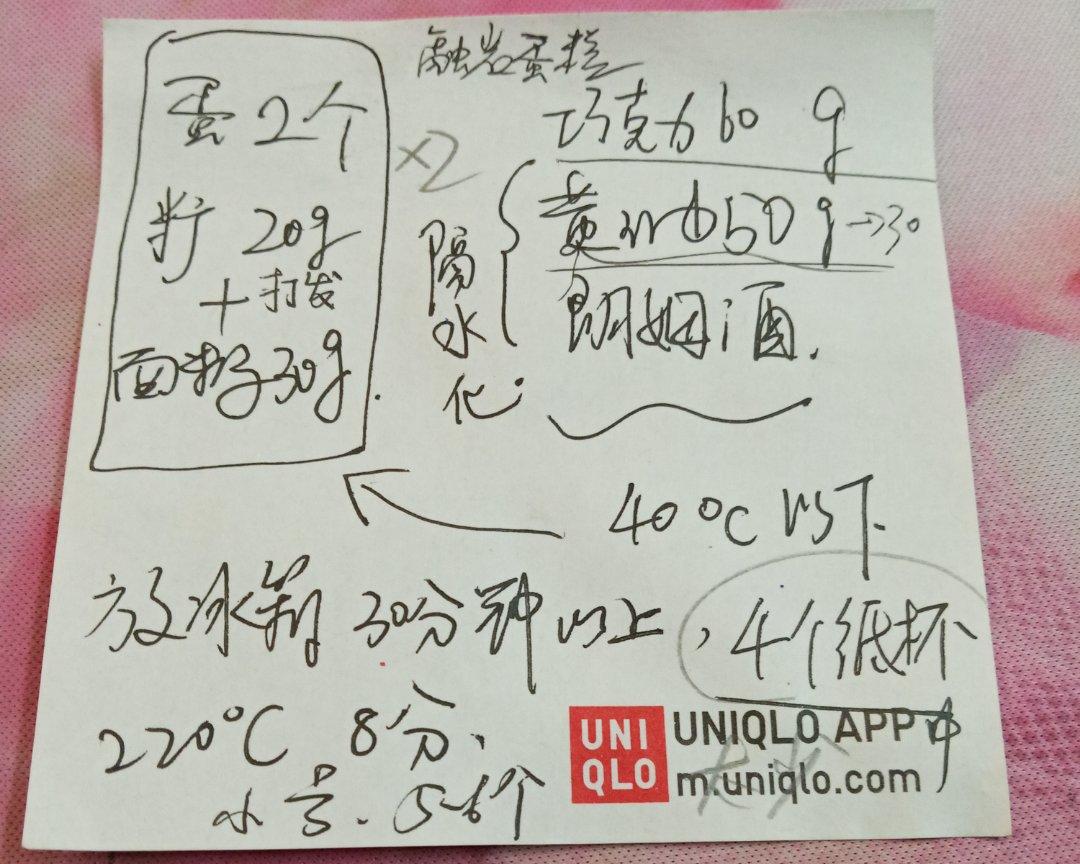 融岩蛋糕
蛋2个
籽20g
+打发
面粉30g.
×2
隔水化.
巧克力60g
黄油50g→30
朗姆酒.
40℃以下.
放冰箱30分钟以上,4个纸杯
中
220℃ 8分.
小号.5-6个
UNI
QLO
UNIQLO APP
m.uniqlo.com